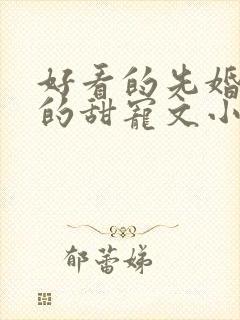 好看的先婚
的甜宠文小
郁蕾娣